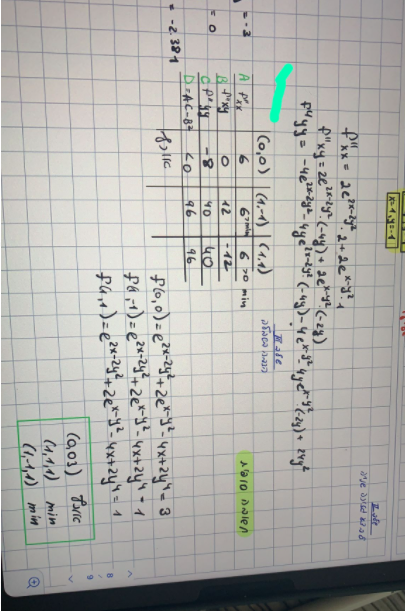 x=1, y=-1
f''xx = 2e^{2x-2y²}·2 + 2e^{x-y²}·1
f''xy = 2e^{2x-2y²}·(-4y) + 2e^{x-y²}·(-2y)
f''yy = -4e^{2x-2y²} -4ye^{2x-2y²}·(-4y) -4e^{x-y²} -4ye^{x-y²}·(-2y) + 24y²
שלב III
(0,0) (1,-1) (1,1)
A f''xx 6 6>0 min 6>0 min
B f''xy 0 12 -12
C f''yy -8 40 40
D=AC-B² <0 96 96
אוכף
= -3
= 0
= -2.381
f(0,0) = e^{2x-2y²} + 2e^{x-y²} -4x+2y⁴ = 3
f(1,-1) = e^{2x-2y²} + 2e^{x-y²} -4x+2y⁴ = 1
f(1,1) = e^{2x-2y²} + 2e^{x-y²} -4x+2y⁴ = 1
(0,0,3) אוכף
(1,1,1) min
(1,-1,1) min
8
9